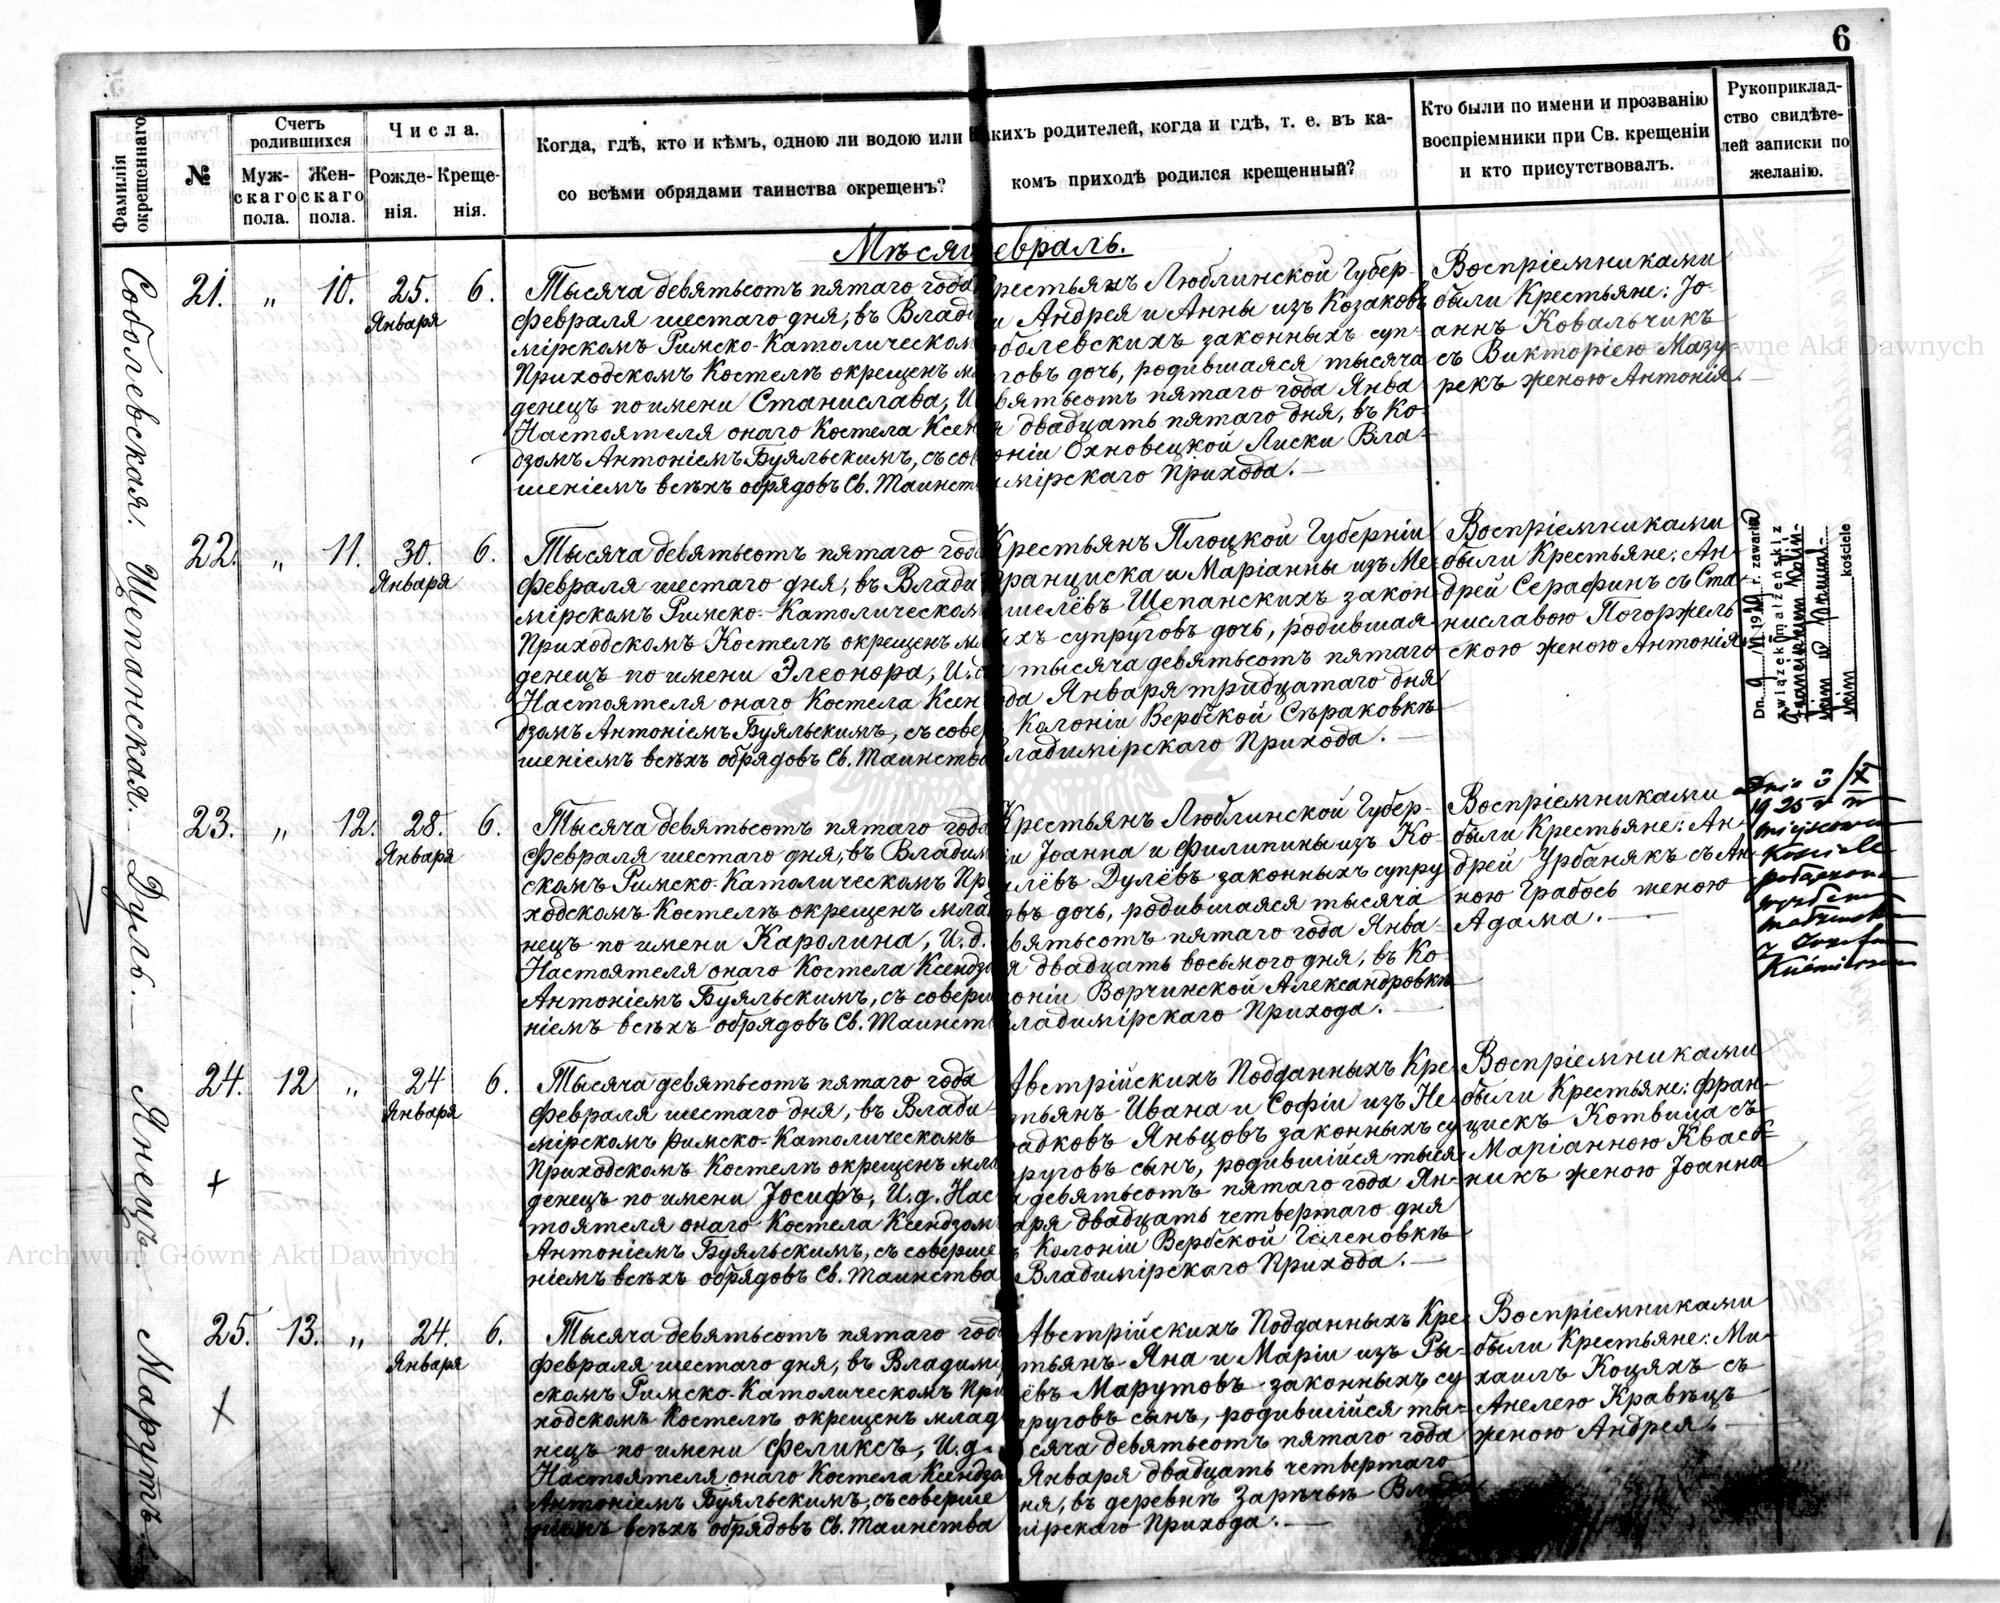 6
Фамилія окрещеннаго.
№
Счетъ родившихся
Муж-
скаго
пола.
Жен-
скаго
пола.
Числа.
Рожде-
нія.
Креще-
нія.
Когда, гдѣ, кто и кѣмъ, одною ли водою или
со всѣми обрядами таинства окрещенъ?
какихъ родителей, когда и гдѣ, т. е. въ ка-
комъ приходѣ родился крещенный?
Кто были по имени и прозванію
воспріемники при Св. крещеніи
и кто присутствовалъ.
Рукоприклад-
ство свидѣте-
лей записки по
желанію.
Мѣсяц евраль.
Соболевская.
21.
„
10.
25.
Января
6.
Тысяча девятьсотъ пятаго года
февраля шестаго дня, въ Влади
мірскомъ Римско-Католическом
Приходскомъ Костелѣ окрещенъ мл
денецъ по имени Станислава, И
Настоятеля онаго Костела Ксен
дзомъ Антоніемъ Буяльскимъ, съ сов
шеніемъ всѣхъ обрядовъ Св. Таинст
рестьянъ Люблинской Губер-
и Андрея и Анны изъ Козаковъ
оболевскихъ законныхъ суп-
говъ дочь, родившаяся тысяча
вятьсотъ пятаго года Янва-
я двадцать пятаго дня, въ Ко-
оніи Охновецкой Лиски Вла-
мірскаго Прихода.
Воспріемниками
были Крестьяне: Іо-
аннъ Ковальчикъ
съ Викторіею Мазу-
рекъ женою Антонія.
Щепанская.
22.
„
11.
30.
Января
6.
Тысяча девятьсотъ пятаго года
февраля шестаго дня, въ Влади
мірскомъ Римско-Католическом
Приходскомъ Костелѣ окрещенъ мл
денецъ по имени Элеонора, И.д
Настоятеля онаго Костела Ксен
дзомъ Антоніемъ Буяльскимъ, съ совер
шеніемъ всѣхъ обрядовъ Св. Таинства
Крестьянъ Плоцкой Губерніи
Франциска и Маріанны изъ Ме-
шелёвъ Щепанскихъ закон-
ыхъ супруговъ дочь, родившая-
тысяча девятьсотъ пятаго
ода Января тридцатаго дня
Колоніи Вербской Сѣраковкѣ
Владимірскаго Прихода.
Воспріемниками
были Крестьяне: Ан-
дрей Серафинъ съ Ста-
ниславою Погоржель
скою женою Антонія.
Dn. 9 VI 1920 r. zawarła
związek małżeński z
kościele
Дуль.
23.
„
12.
28.
Января
6.
Тысяча девятьсотъ пятаго года
февраля шестаго дня, въ Владим
скомъ Римско-Католическомъ Пр
ходскомъ Костелѣ окрещенъ млад
нецъ по имени Каролина, И.д.
Настоятеля онаго Костела Ксендз
Антоніемъ Буяльскимъ, съ соверш
ніемъ всѣхъ обрядовъ Св. Таинст
Крестьянъ Люблинской Губер-
іи Іоанна и Филипины изъ Ко-
алёвъ Дулёвъ законныхъ супру
овъ дочь, родившаяся тысяча
вятьсотъ пятаго года Янва-
я двадцать восьмого дня, въ Ко-
оніи Ворчинской Александровкѣ
Владимірскаго Прихода.
Воспріемниками
были Крестьяне: Ан-
дрей Урбанякъ съ Ан-
ною Грабось женою
Адама.
Dnia
1925 r w
miejscowym
Kościele
z Józefem
Янецъ.
24.
12
„
24
Января
6.
Тысяча девятьсотъ пятаго года
февраля шестаго дня, въ Влади-
мірскомъ Римско-Католическомъ
Приходскомъ Костелѣ окрещенъ мла
денецъ по имени Іосифъ, И.д. Нас
тоятеля онаго Костела Ксендзом
Антоніемъ Буяльскимъ, съ соверше
ніемъ всѣхъ обрядовъ Св. Таинства
Австрійскихъ Подданныхъ Кре-
тьянъ Ивана и Софіи изъ Не-
адковъ Яньцовъ законныхъ су
руговъ сынъ, родившійся тыся
девятьсотъ пятаго года Ян-
аря двадцать четвертаго дня
Колоніи Вербской Геленовкѣ
Владимірскаго Прихода.
Воспріемниками
были Крестьяне: Фран-
цискъ Котвица съ
Маріанною Квасъ-
никъ женою Іоанна
Марутъ.
25.
13.
„
24.
Января
6.
Тысяча девятьсотъ пятаго год
февраля шестаго дня, въ Владими
скомъ Римско-Католическомъ При
ходскомъ Костелѣ окрещенъ млад
нецъ по имени Феликсъ, И.д.
Настоятеля онаго Костела Ксендзо
Антоніемъ Буяльскимъ, съ соверше
ніемъ всѣхъ обрядовъ Св. Таинства
Австрійскихъ Подданныхъ Кре-
тьянъ Яна и Маріи изъ Ры-
ёвъ Марутовъ законныхъ су
пруговъ сынъ, родившійся ты-
сяча девятьсотъ пятаго года
Января двадцать четвертаго
ня, въ деревнѣ Зарѣчьѣ Влад
мірскаго Прихода.
Воспріемниками
были Крестьяне: Ми-
хаилъ Коцяхъ съ
Анелею Кравѣцъ
женою Андрея.
Archiwum Główne Akt Dawnych
Archiwum Główne Akt Dawnych